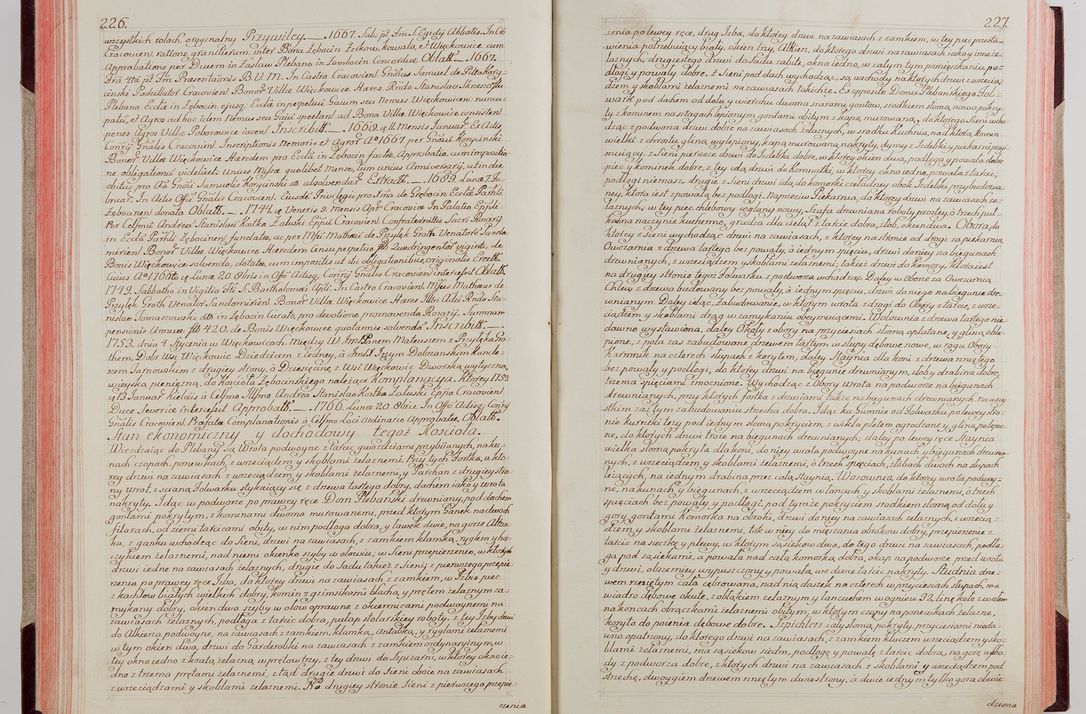 226.
wszystkich rolach, oryginalny Przywiley — 1667. Sab. pt Fm S. Egidij Abbatis. In Cō
Cracovien, ratione graniterum inter Bona Zębocin Zelkow, Kowala, et Więckowice cum
Approbatione per Ducem in Zasław Plebano in Zembocin Concordiæ Oblatt — 1667.
Fra 4ta pt Fm Præsentaōnis B. V. M. In Castro Cracovien Gnōsus Samuel de Petrokory-
cinski Podcillator Cracovien Bonor Villæ Więckowice Hæres Rndo Stanislao
Plebano Eccliæ in Zębocin, ejusq. Ecclæ in perpetuū Gaium seu Nemus Więckowien: nuncu-
patū, et Agros ad hoc idem Nemus seu Gaiū spectan ad Bona Villæ Więckowice consisten
penes Agros Villæ Poborowice iacen Inscribitt — 1669. 4 mensis Januar Ex Actis
Contry Gnalis Cracovien Inscriptionis Nemoris et Agror Aō 1667. per Gnōsū Korycinski
Bonor Villæ Więckowice Hæredem pro Ecclā in Zębocin factæ, Approbatio, cum impositio-
ne obligationū videlicet: Unius Missæ quolibet mense, tum uncius Anniversarij, ut in die
obitus pro Gnōsi Samuelis Korycinski absolvendar Extractt — 1689. Lunæ 7. Fe-
bruar. In Actis Offi Gnalis Cracovien. Eiusdē Privilegii pro Scīa de Grębocin Ecclæ Parhli
Zęboceinen donata Oblatt — 1744. Veneris 3. Mensis Apr Cracoviæ In Palatio Eppli
Per Celsmū Andreā Stanislaū Kostka Zaluski Eppū Cracovien, Confraternitatis Sacri Rosarij
in Ecclā Parhli Zębocinen fundatæ, ac per Mfcū Mathæū de Przyłęk Groth Venatorē Sando-
mirien Bonor Villæ Więckowice Hæredem Censu perpetuo fl Quadringentor viginti, de
Bonis Więckowice solvendo, dotatæ, cum impositis ut ibi obligationibus originalis Erectt
Cuius Aō 1766to Lunæ 20. 8bris in Offō Actisq. Contry Gnalis Cracovien intercessit Oblatt.
1749. Sabbatho in Vigilia Fti S. Bartholomæi Apli. In Castro Cracovien Mfcus Mathæus de
Przyłęk Groth Venator Sandomirien Bonor Villæ Więckowice Hæres Illri Adm Rndo Sta-
nislao Tomaszowski dto in Zębocin Curato, pro devotione promovenda Rosarij. Summam
pensionis Annuæ fl 420. de Bonis Więckowice quotannis solvendā Inscribitt —
1753. dnia 4. Stycznia w Więckowicach. Między W. Jmc Panem Mateuszem z Przyłęka Gro-
them, Dobr Wsi Więckowic Dziedzicem z iedney, à Jmc X. Jozym Dobranskim Kancle-
rzem Tarnowskim z drugiey strony, o Dziesięcinę z Wsi Więckowic Dworską wytyczną,
wieyską pieniężną, do Kościoła Zębocinskiego należące Komplanacya. Ktorey 1753
4 13 Januar Kielcis à Celsmo Illmo Andrea Stanislao Kostka Zaluski Eppo Cracovien
Duce Severiæ intercessit Approbatt — 1766. Lunæ 20. 8bris. In Offō Actisq. Contry
Gnalis Cracovien Præfatæ Complanationis à Celsmo Loci Ordinario Approbatæ, Oblatt.
Stan ekonomiczny y dochodowy tegoż Kościoła.
Wierdzaiąc do Plebany są Wrota podwoyne z tarcic gwoździami przybiianych, na ku-
nach czopach, ponewkach, z wrzeciądzem y skoblami żelaznemi. Przy tych Fortka, u kto-
rey drzwi na zawiasach z wrzeciądzem y skoblami żelaznemi, y Parchan z drugiey stro-
ny Wrot, z scianą Folwarku stykaiący się z drzewa tartego dobry, dachem iako y wrota
nakryty. Jdąc w podworze po prawey ręce Dom Plebanski drewniany, pod dachem
gontami pokrytym, z kominami dwoma murowanemi, przed ktorym Ganek na dwoch
filarach, od ziemi tarcicami obity, w nim podłoga dobra, y ławek dwie, na gorze Altan-
ka, z ganku wchodząc do Sieni, drzwi na zawiasach, z zamkiem, klamką, ryglem, y ha-
czykiem żelaznemi, nad niemi okienko szyby w ołowiu, w Sieni przepierzenie, w ktorych
drzwi iedne na zawiasach żelaznych, drugie do Sadu także z Sieni, z pierwszego przepie-
rzenia po prawey ręce Izba, do ktorey drzwi na zawiasach, z zamkiem, w Izbie piec
z kachlow białych wielkich dobry, komin z gzimskami blachą, y prętem żelaznym za-
mykany dobry, okien dwa szyby w ołow oprawne z okiennicami podwoynemi na
zawiasach żelaznych, podłoga z tarcic dobra, pułap stolarskiey roboty. z tey Izby drzwi
do Alkierza podwoyne, na zawiasach z zamkiem, klamką, Antabką, y ryglami żelaznemi
w tym okien dwa, drzwi do Garderobki na zawiasach z zamkiem ordynaryinym, w
tey okno iedno z kratą żelazną, w prelow trzy, z tey drzwi do Spizarni, w ktorey okno ie-
dno z trzema prętami żelaznemi, z tąd drugie drzwi do Sieni oboie na zawiasach
z wrzeciądzami y skoblami żelaznemi. Na drugiey stronie Sieni z pierwszego przepie-
rzenia
227.
rzenia po lewey ręce, drug Izba, do ktorey drzwi na zawiasach z zamkiem, w tey piec przesta-
wienia potrzebuiący biały, okien trzy. Alkierz, do ktorego drzwi na zawiasach iako y inne że-
laznych, drugie z tego drzwi do Sadu zabite, okno iedno, w całym tym pomięszkaniu po-
dłogi y powały dobre. z Sieni pod dach wychodząc, są wschody, na ktorych drzwi z wrzecią-
dzem y skoblami żelaznemi na zawiasach takichże. Ex opposito Domu Plebanskiego Fol-
wark pod dachem od dołu y wierzchu dwoma warami gontow, srodkiem słomą, nowo pokry-
ty z kominem na słęgach lepionym gontami obitym z kapą murowaną, do ktorego Sieni wcho-
dząc z podworza drzwi dobre na zawiasach żelaznych, w srodku Kuchnia, nad którą komin
wielki z chrostu gliną wylepiony, kapą murowaną nakryty, dymy z Izdebki y piekarni przyi-
muiący, z Sieni pierwsze drzwi do Izdebki dobre, w ktorey okien dwa, podłoga y powała dobra
piec y kominek dobre, z tey idą drzwi do Komnatki, w ktorey okno iedno, powała z tarcic,
podłogi niemasz, drugie z Sieni drzwi idą do komorki czeladney obok Izdebki przybudowa-
ney, która iest z powałą bez podłogi. Naprzeciw Piekarnia, do ktorey drzwi na zawiasach że-
laznych, w tey piec chlebowy ceglany nowy, Szafa drewniana roboty prostey, o trzech puł-
kach na naczynie kuchenne, ogrodza dla cieląt z tarcic dobra, złob, okien dwa. Obora, do
ktorey z Sieni wychodząc drzwi na zawiasach, z ktorey na stronie od drogi za piekarnią
Owczarnia z drzewa tartego bez powały, o iednym spięciu, drzwi do niey na biegunach
drewnianych, z wrzeciądzem y skoblami żelaznemi, takież drzwi do komory, która iest
na drugiey stronie tegoż Folwarku, z podworza wchodząc. Daley w Oborze za Owczarnią
Chlew z drzewa budowany bez powały o iednym spięciu, drzwi do niego na biegunie dre-
wnianym. Daley idąc, zabudowanie, w ktorym wrota z drogi do Obory z tarcic, z wrze-
ciądzem y skoblami, drąg w zamykaniu obeymuiącemi. Wołownia z drzewa tartego nie-
dawno wystawiona, daley Okoły z obory na przyciesiach słomą oplatane, y gliną oble-
pione, z pola zas zabudowane drzewem tartym, w słupy dębowe nowe, w rogu Obory
Karmnik na czterech słupach z korytem, daley Stajnia dla koni z drzewa rzniętego
bez powały y podłogi, do ktorey drzwi na biegunie drewnianym, żłoby drabiną dobre,
trzema spięciami zmocnione. Wychodząc z Obory Wrota na podworze na biegunach
drewnianych, przy ktorych fortka z drzwiami także na biegunach drewnianych. Na wszy-
stkim zas tym zabudowaniu strzecha dobra. Jdąc ku Gumnie od Folwarku po lewey stro-
nie kurniki trzy pod iednym słomą pokryciem, z wikła płotem ogrodzone, y gliną polepio-
ne, do ktorych drzwi troie na biegunach drewnianych, daley po lewey ręce Staynia
wielka słomą pokryta dla koni, do niey wrota podwoyne na kunach y biegunach drewnia-
nych, z wrzeciądzem y skoblami żelaznemi, o trzech spięciach, żłobach dwoch na słupach
leżących, na iednym drabina przez całą Staynią. Wozownia do ktorey wrota podwoy-
ne, na kunach y biegunach, z wrzeciądzem w łancuch y skoblami żelaznemi, o trzech
spięciach, bez powały, y podłogi, pod tymże pokryciem srodkiem słomą, od dołu y
gory gontami. Komorka na obroki, drzwi do niey na zawiasach żelaznych, z wrzecią-
dzem y skoblami żelaznemi, tok w niey do mięszania obrokow dobry, przepierzenie z
tarcic na sieczkę y plewy, w ktorym sąsiekow dwa, do tego drzwi na zawiasach, podło-
ga pod sąsiekami, a powała nad całą komorką dobrą, okap na podworze przed wrota
y drzwi, obszerniey wypuszczony, y powałą we dwie tarcice nakryty. Studnia drze-
wem rzniętym cała cębrowana, nad nią daszek na czterech w przyciesiach słupach, ma
wiadro dębowe okute, z obłąkiem żelaznym y łancuchem, w ogniew 32, linę, koło z wałem
na koncach obrączkami żelaznemi obitym, w ktorym czopy na ponewkach żelazne,
koryto do poienia dębowe dobre. Szpichlerz cały słomą pokryty, przyciesiami niedaw-
no opatrzony, do ktorego drzwi na zawiasach, z zamkiem, kluczem, wrzeciądzem y sko-
blami żelaznemi, ma sąsiekow siedm, podłogę y powałę z tarcic dobrą, na gorę wscho-
dy z podworza dobre, z ktorych drzwi na zawiasach z skoblami y wrzeciądzem pod
strzechę, dwoygiem drzewem rzniętym dwie strony, a dwie iednym ty lka gora obwie-
dziona